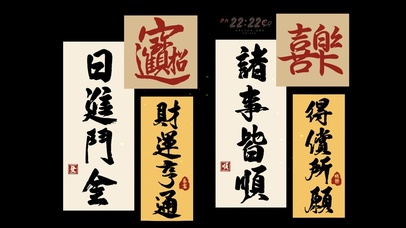 招財進寶
日進鬥金
財運亨通
22:22
喜樂
諸事皆順
得償所願